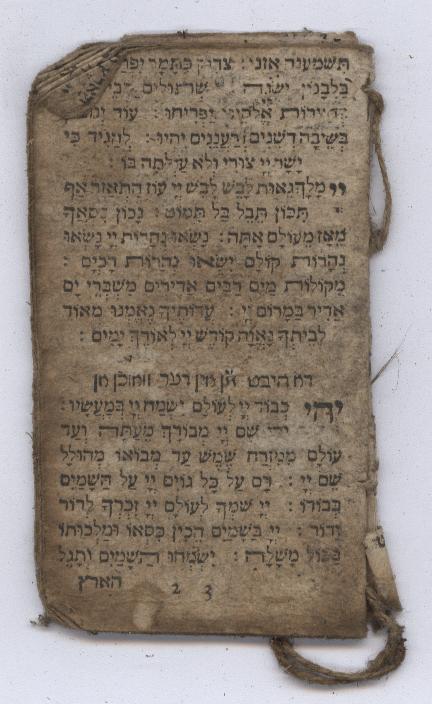 תשמענה אזני: צדיק כתמר יפר
כלבנון ישגה: שתולים בבי
יי אלקינו יפריחו: עוד ינו
בשיבה דשנים ורעננים יהיו: להגיד כי
ישר יי צורי ולא עולתה בו:
יי מלך גאות לבש לבש יי עוז התאזר אף
תכון תבל בל תמוט: נכון כסאך
מאז מעולם אתה: נשאו נהרות יי נשאו
נהרות קולם ישאו נהרות דכים:
מקולות מים רבים אדירים משברי ים
אדיר במרום יי: עדותיך נאמנו מאוד
לביתך נאוה קודש יי לאורך ימים:
דח היבט
יהי כבוד יי לעולם ישמח יי במעשיו:
יהי שם יי מבורך מעתה ועד
עולם ממזרח שמש עד מבואו מהולל
שם יי: רם על כל גוים יי על השמים
כבודו: יי שמך לעולם יי זכרך לדור
ודור: יי בשמים הכין כסאו ומלכותו
בכול משלה: ישמחו השמים ותגל
הארץ
2 3